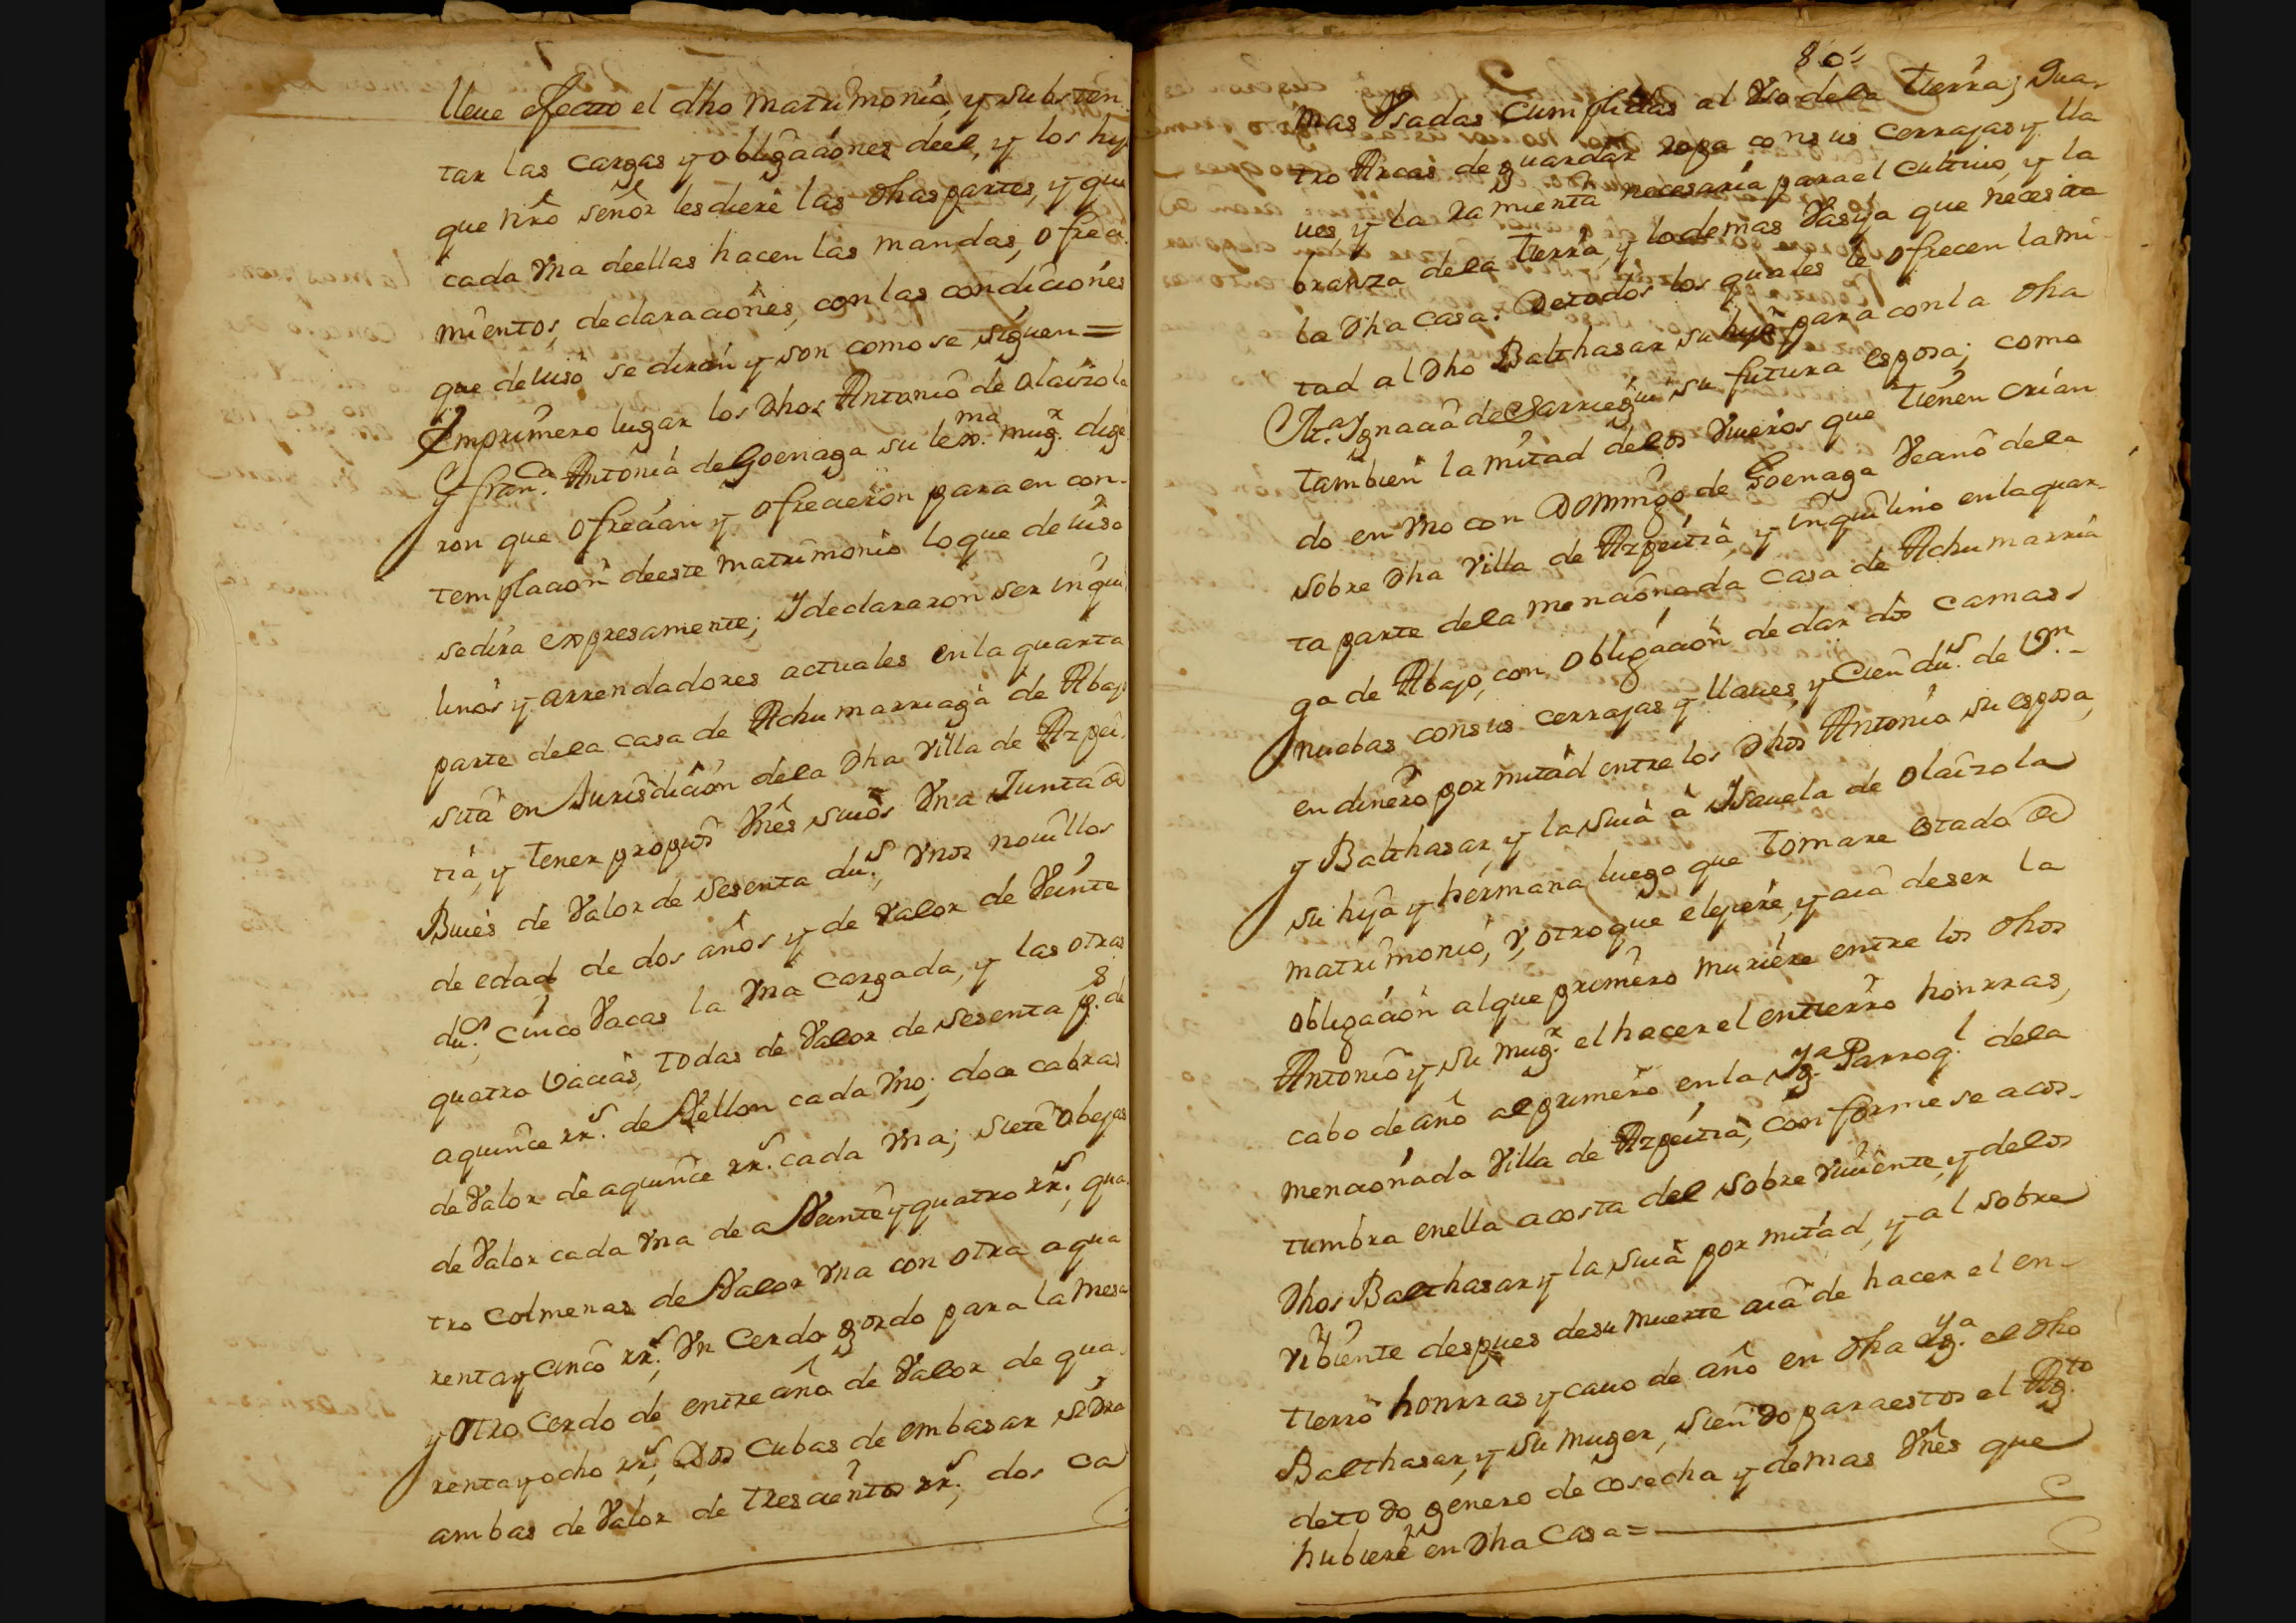 lleue efecto el dho matrimonio, y substen
tar las cargas y obligaciones deel, y los hij
que nrô señor lesdiere las dhas partes, y que
cada vna deellas hacen las mandas, ofreci
mientos, declaraciones, con las condiciones
que de iuso se diran y son como se siguen =
Emprimero lugar los dhos Antonio de Olaizola
y franca. Antonia de Goenaga su lexma. mugr. dige
ron que ofrecian y ofrecieron para en con-
templacion deeste matrimonio lo que de iuso
sedira expresamente; Y declararon ser inqui
linos y arrendadores actuales enla quarta
parte dela casa de Achumarriaga de Abajo
sita en Jurisdicion dela dha villa de Azpei-
tia, y tener propios vnes suios vna Junta de
Buies de valor de sesenta dus., vnos nouillos
de edad de dos años y de valor de veinte
dus., cinco vacas la vna cargada, y las otras
quatro vacias, todas de valor de sesenta ps. de
aquince rrs. de vellon cada vno; doce cabras
de valor de aquince rrs. cada vna; siete obejas
de valor cada vna de a veinte y quatro rrs., qua
tro colmenas de valor vna con otra a qua
renta y cinco rrs., vn cerdo gordo para la mesa
y otro cerdo de entre año de valor de qua-
renta y ocho rrs., dos cubas de embasar sidra
ambas de valor de trescientos rrs., dos ca
80
mas vsadas cumplidas al vso dela tierra; qua-
tro Arcas de guardar ropa consus cerrajas y lla
ues, y la ramienta necesaria para el cultiuo, y la
branza dela tierra, y lo demas vasija que necesite
la dha casa. De todos los quales le ofrecen la mi-
tad al dho Balthasar su hijo para con la dha
Ma. Ygnacia de su futura esposa; como
tambien la mitad delos viueros que tienen crian
do en vno con Domingo de Goenaga vecino dela
sobre dha villa de Azpeitia, y inquilino enla quar-
ta parte dela mencionada casa de Achumarria
ga de Abajo, con obligacion de dar dos camas
nuebas consus cerrajas y llaues, y Cien dus. de vn.
en dinero por mitad entre los dhos Antonio su esposa,
y Balthasar, y la suia à Ysauela de Olaizola
su hija y hermana luego que tomare estado de
matrimonio, v, otro que elijere, y acia deser la
obligacion al que primero muriere entre los dhos
Antonio y su mugr. el hacer el entierro honrras,
cabo de año al primero en la Ygª. Parroql. dela
mencionada villa de Azpeitia, conforme se acos-
tumbra enella acosta del sobre viuiente, y delos
dhos Balthasar y la suia por mitad, y al sobre
vibiente despues desu muerte acia de hacer el en-
tierro honrras y cauo de año en dha Ygª. el dho
Balthasar, y su muger, siendo para estos el Agto.
detodo genero de cosecha y demas vnes que
hubiere en dha Casa =